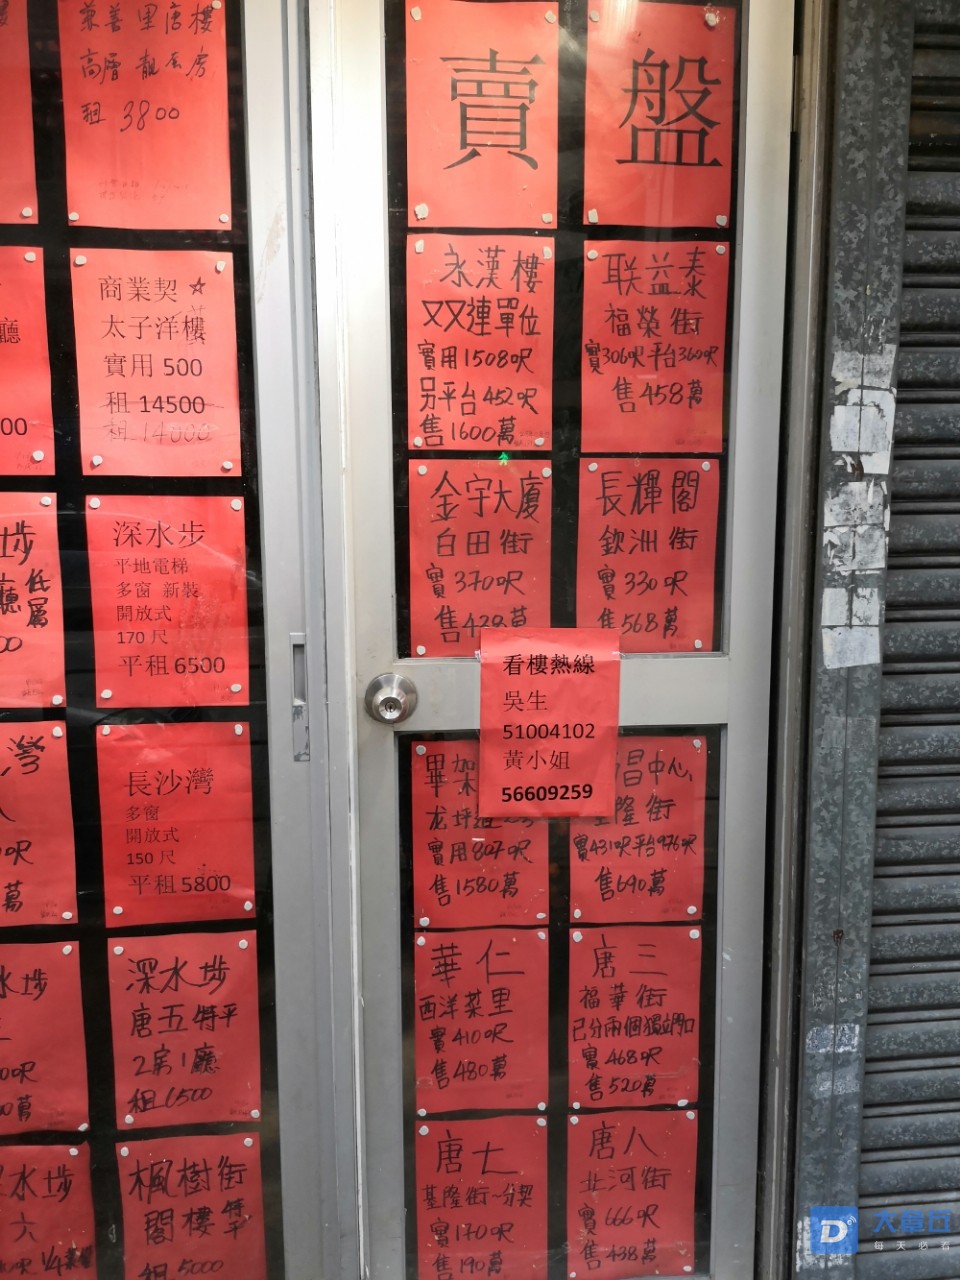 業善里唐樓
高層 龍床房
租 3800
廳
00
商業契☆
太子洋樓
實用 500
租 14500
租 14000
低
廳 層
00
深水步
平地電梯
多窗 新裝
開放式
170 尺
平租 6500
灣
呎
萬
長沙灣
多窗
開放式
150 尺
平租 5800
水埗
呎
萬
深水埗
唐五 特平
2房1廳
租 6500
水埗
六
楓樹街
閣樓 特平
租 5000
賣 盤
永漢樓
又又連單位
實用1508呎
另平台452呎
售1600萬
联益泰
福榮街
實306呎平台360呎
售458萬
金宇大廈
白田街
實370呎
售428萬
長輝閣
欽洲街
實330呎
售568萬
看樓熱線
吳生
51004102
黃小姐
56609259
畢加
龙坪道
實用807呎
售1580萬
昌中心
基隆街
實431呎平台976呎
售690萬
華仁
西洋菜里
實410呎
售480萬
唐三
福華街
已分兩個獨立門口
實468呎
售520萬
唐七
基隆街一分契
實170呎
售190萬
唐八
北河街
實666呎
售438萬
大章丘
每天必看